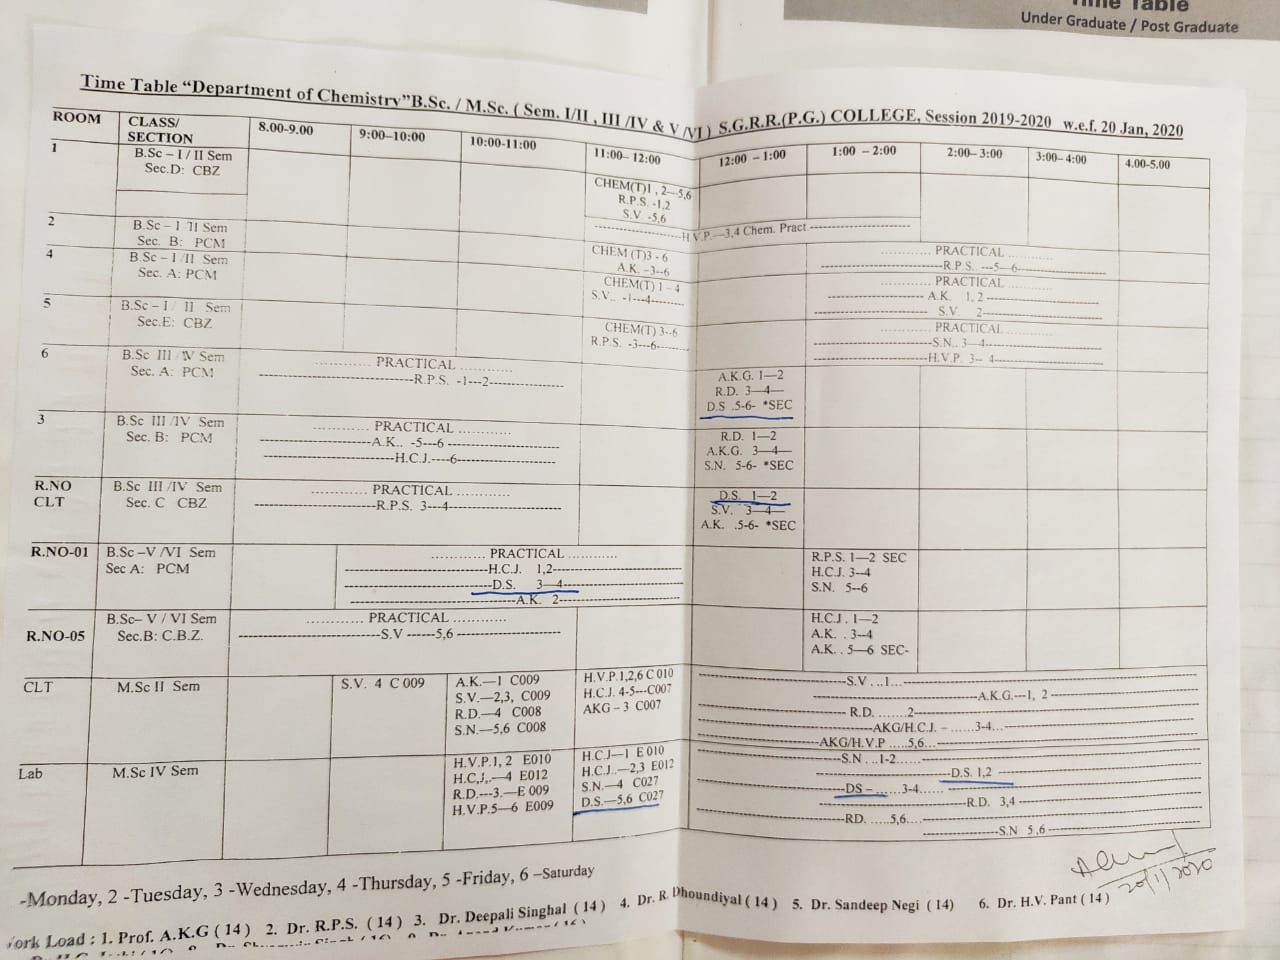 Time Table
Under Graduate / Post Graduate
Time Table “Department of Chemistry”B.Sc. / M.Sc. ( Sem. I/II , III /IV & V /VI ) S.G.R.R.(P.G.) COLLEGE, Session 2019-2020 w.e.f. 20 Jan, 2020
ROOM CLASS/ SECTION 8.00-9.00 9:00–10:00 10:00-11:00 11:00– 12:00 12:00 – 1:00 1:00 – 2:00 2:00– 3:00 3:00– 4:00 4.00-5.00
1 B.Sc – I / II Sem
Sec.D: CBZ
CHEM(T)1 , 2—5,6
R.P.S. -1,2
S.V -5,6
2 B.Sc – I II Sem
Sec. B: PCM
H.V.P.—3,4 Chem. Pract
CHEM (T)3 - 6
A.K. –3--6
PRACTICAL
R.P.S.. ---5—6
4 B.Sc – I /II Sem
Sec. A: PCM
CHEM(T) 1 – 4
S.V.. -1---4
PRACTICAL
A.K. 1, 2
S.V. 2
5 B.Sc – I / II Sem
Sec.E: CBZ
CHEM(T) 3--6
R.P.S. -3---6
PRACTICAL
S.N.. 3—4
H.V.P. 3– 4
6 B.Sc III IV Sem
Sec. A: PCM
PRACTICAL
R.P.S. -1---2
A.K.G. 1—2
R.D. 3—4—
D.S .5-6- *SEC
3 B.Sc III /IV Sem
Sec. B: PCM
PRACTICAL
A.K.. -5---6
H.C.J.----6
R.D. 1—2
A.K.G. 3—4—
S.N. 5-6- *SEC
R.NO CLT B.Sc III /IV Sem
Sec. C CBZ
PRACTICAL
R.P.S. 3---4
D.S. 1—2
S.V. 3—4—
A.K. .5-6- *SEC
R.NO-01 B.Sc –V /VI Sem
Sec A: PCM
PRACTICAL
H.C.J. 1,2
D.S. 3—4
A.K. 2
R.P.S. 1—2 SEC
H.C.J. 3--4
S.N. 5--6
R.NO-05 B.Sc– V / VI Sem
Sec.B: C.B.Z.
PRACTICAL
S.V ------5,6
H.C.J . 1—2
A.K. . 3--4
A.K. . 5—6 SEC-
CLT M.Sc II Sem
S.V. 4 C 009
A.K.—1 C009
S.V.—2,3, C009
R.D.—4 C008
S.N.—5,6 C008
H.V.P.1,2,6 C 010
H.C.J. 4-5---C007
AKG – 3 C007
S.V . ..1...
A.K.G.---1, 2
R.D. .......2
AKG/H.C.J. – ......3-4...
AKG/H.V.P .....5,6...
Lab M.Sc IV Sem
H.V.P.1, 2 E010
H.C,J,.— 4 E012
R.D.---3.—E 009
H.V.P.5—6 E009
H.C.J—1 E 010
H.C.J..–-2,3 E012
S.N.—4 C027
D.S.—5,6 C027
S.N ...1-2
D.S. 1,2
DS – ...... 3-4
R.D. 3,4
RD. .....5,6
S.N 5 ,6
-Monday, 2 -Tuesday, 3 -Wednesday, 4 -Thursday, 5 -Friday, 6 –Saturday
20/1/2020
ork Load : 1. Prof. A.K.G ( 14 ) 2. Dr. R.P.S. ( 14 ) 3. Dr. Deepali Singhal ( 14 ) 4. Dr. R. Dhoundiyal ( 14 ) 5. Dr. Sandeep Negi ( 14) 6. Dr. H.V. Pant ( 14 )